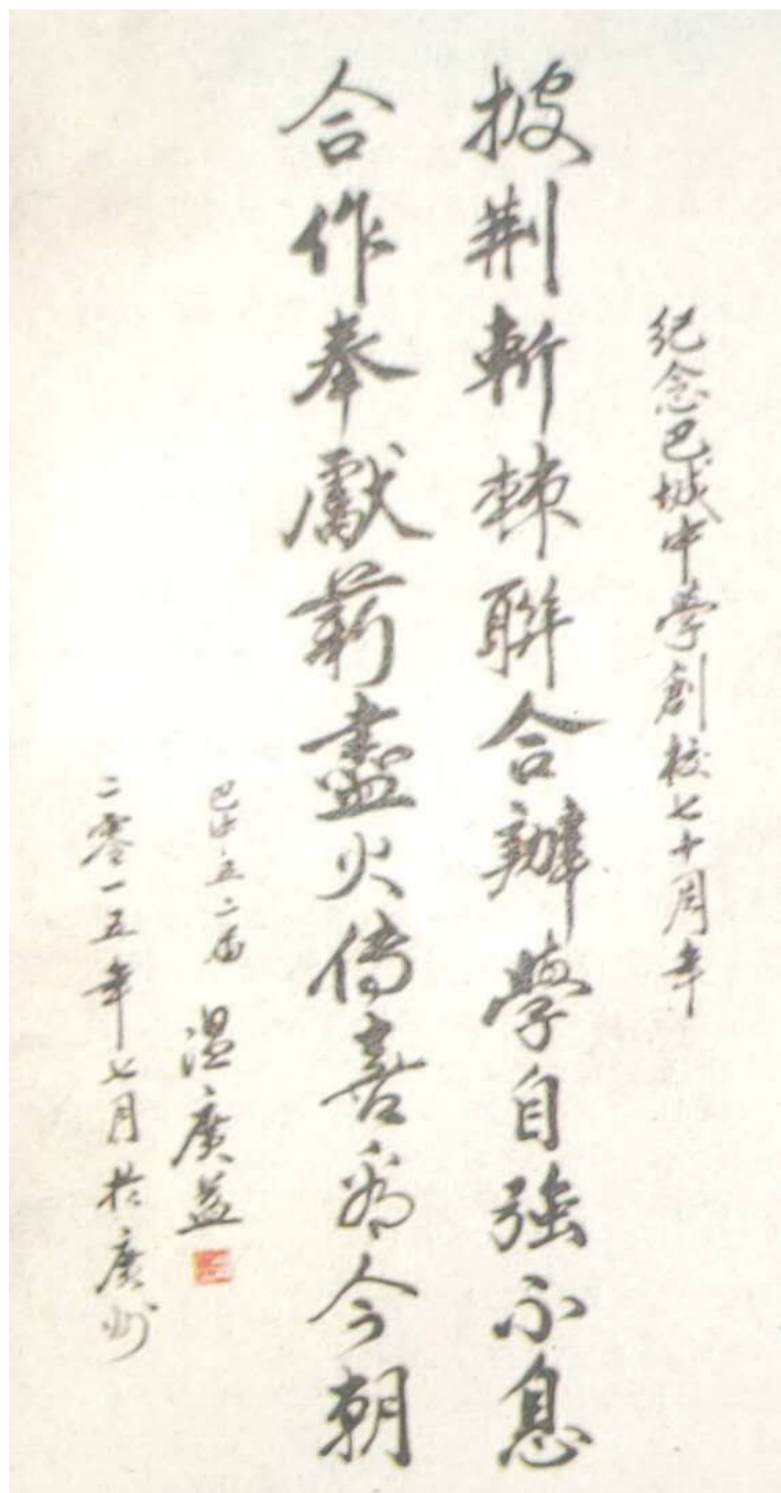 紀念巴城中學創校七十周年
披荆斬棘聯合辦學自強不息
合作奉獻薪盡火傳喜看今朝
巴中五二届 溫廣益
二零一五年七月於廣州